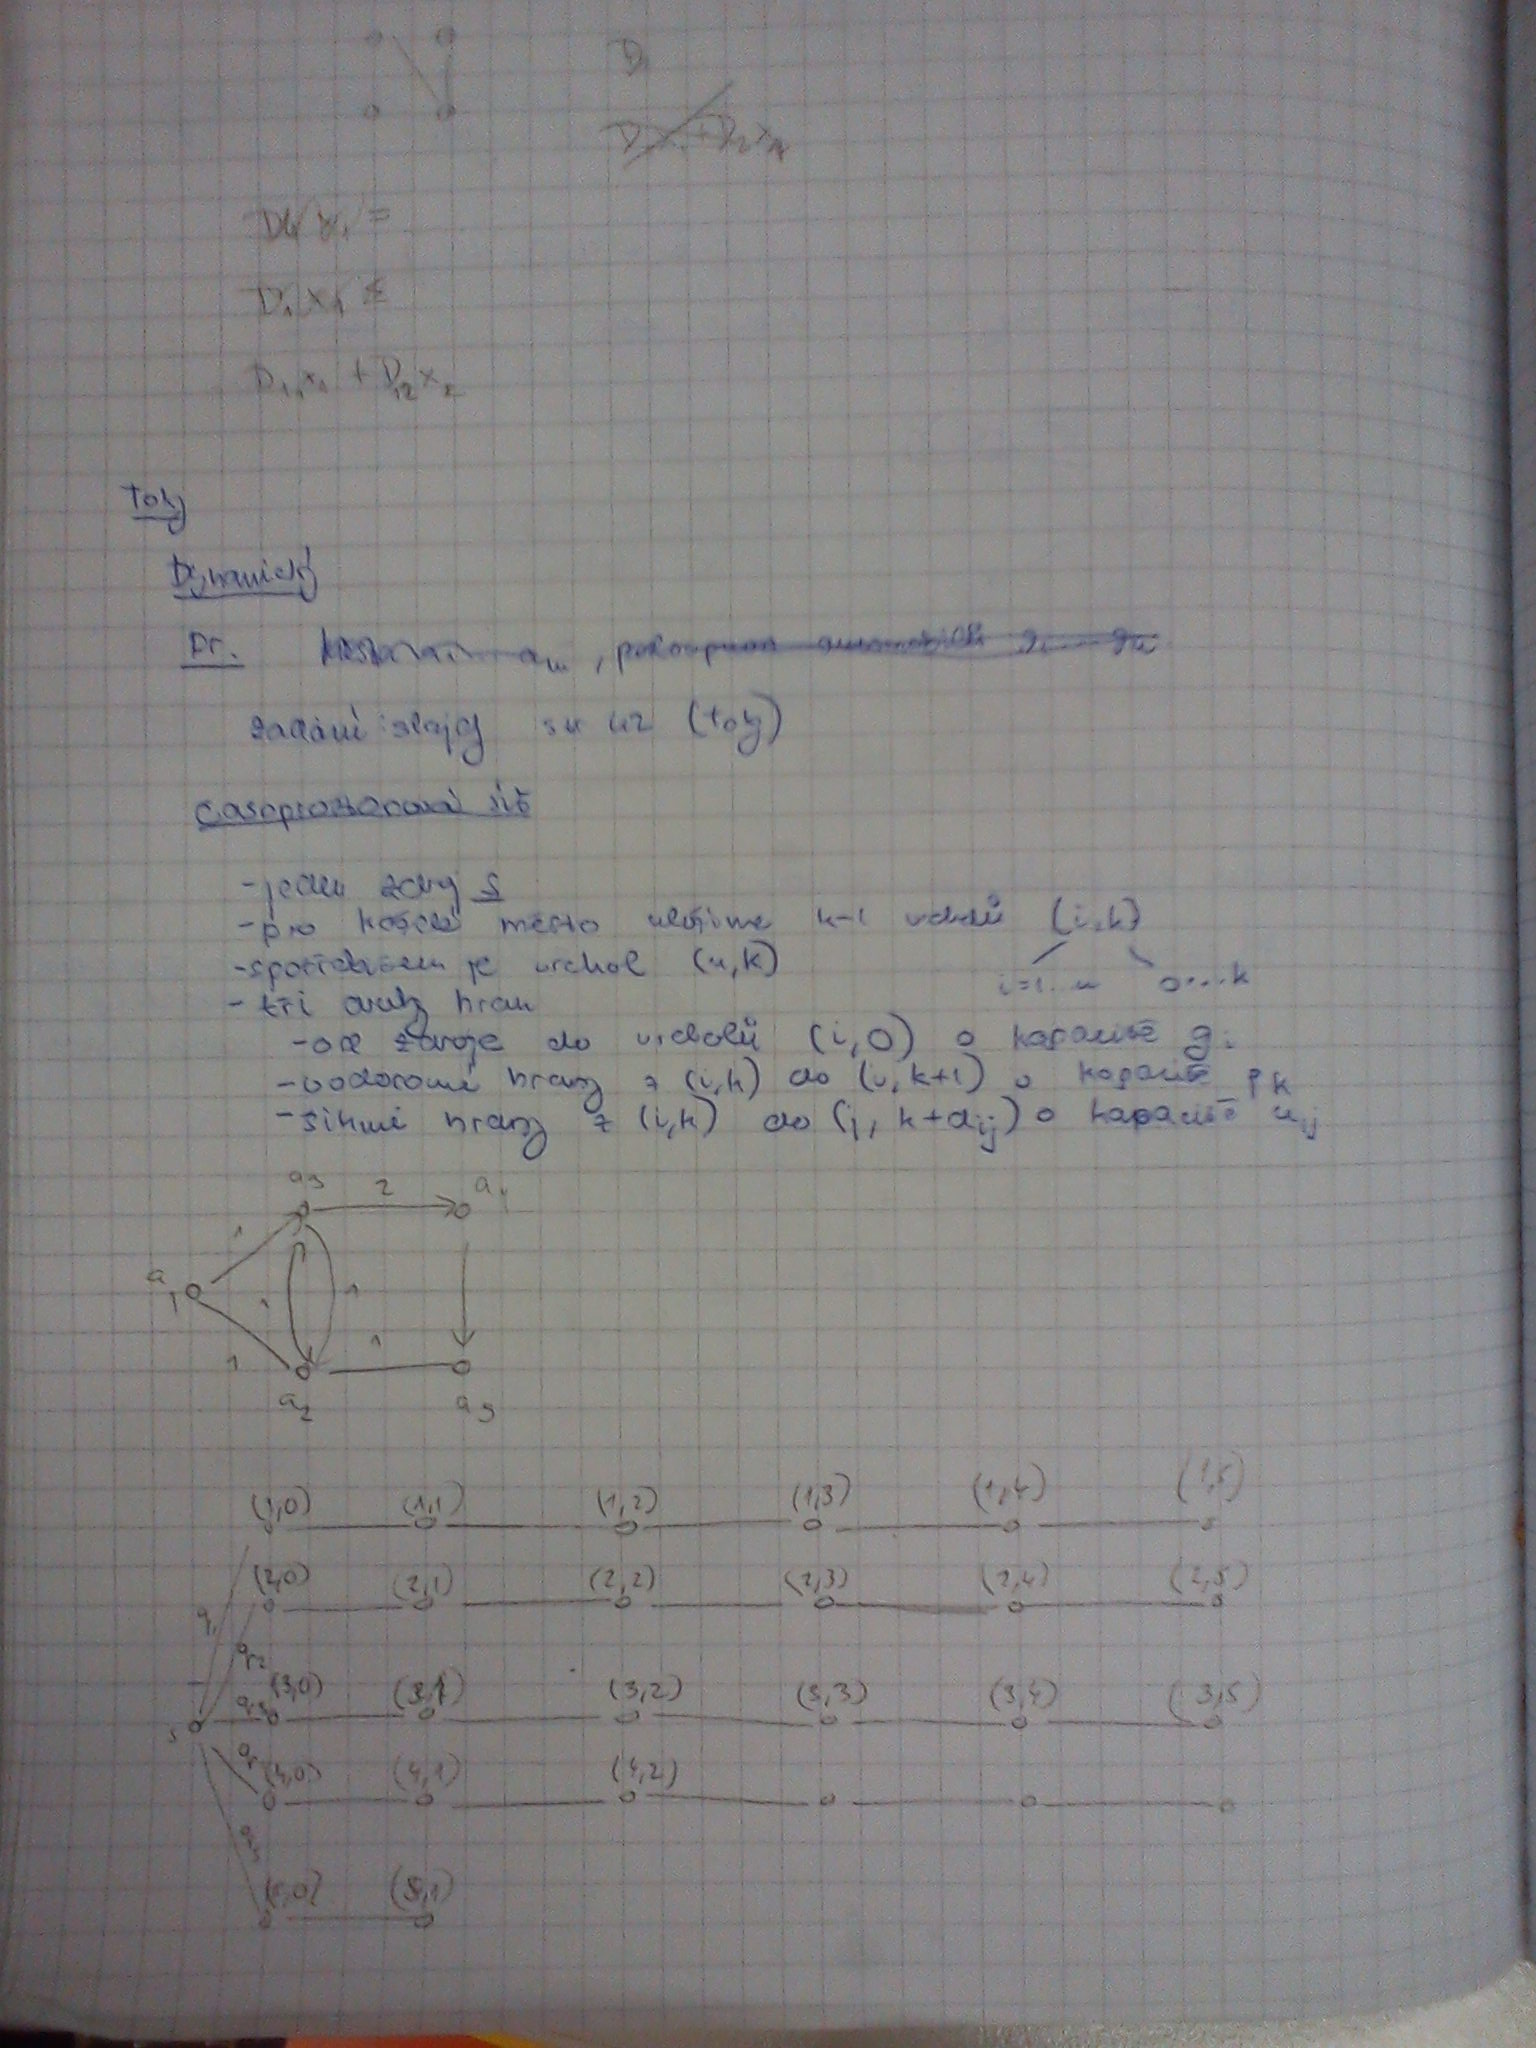 D₁
D₁x₁ =
D₁x₁ ≤
D₁₁x₁ + D₁₂x₂
Toky
Dynamický
Př.
zadání slajdy su uz (toky)
Časoprostorová síť
- jeden zdroj s
- pro každé město uložíme k-1 vrcholů (i,k)
- spotřebičem je vrchol (n,k)
i=1...n 0....k
- tři druhy hran
- od zdroje do vrcholů (i,0) o kapacitě gi
- vodorovné hrany z (i,k) do (i,k+1) o kapacitě pk
- šikmé hrany z (i,k) do (j, k+dij) o kapacitě uij
a3 2 a4
1
a1 1 1
1 1
a2 a5
(1,0) (1,1) (1,2) (1,3) (1,4) (1,5)
(2,0) (2,1) (2,2) (2,3) (2,4) (2,5)
(3,0) (3,1) (3,2) (3,3) (3,4) (3,5)
s
(4,0) (4,1) (4,2)
(5,0) (5,1)